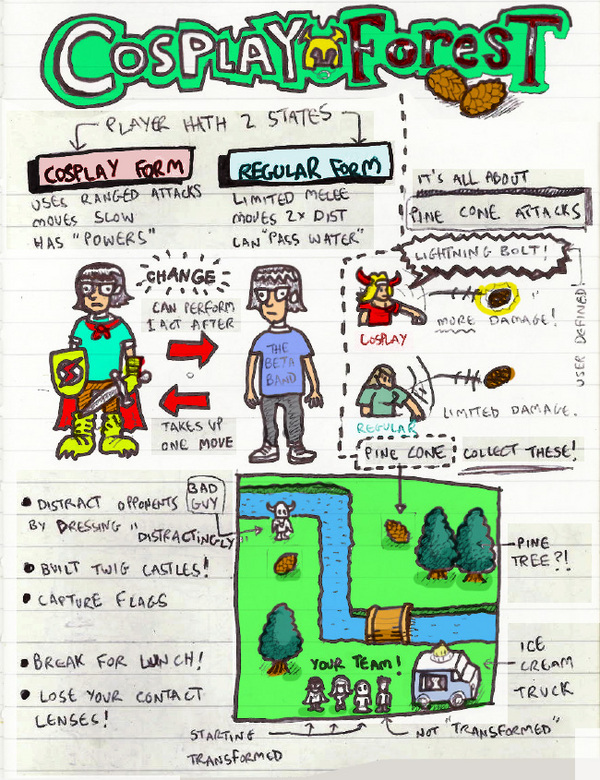 COSPLAY FOREST
PLAYER HATH 2 STATES
COSPLAY FORM
USES RANGED ATTACKS
MOVES SLOW
HAS "POWERS"
REGULAR FORM
LIMITED MELEE
MOVES 2X DIST
CAN "PASS WATER"
IT'S ALL ABOUT
PINE CONE ATTACKS
CHANGE
CAN PERFORM
1 ACT AFTER
TAKES UP
ONE MOVE
THE
BETA
BAND
LIGHTNING BOLT!
MORE DAMAGE!
COSPLAY
USER DEFINED
LIMITED DAMAGE.
REGULAR
PINE CONE
COLLECT THESE!
• DISTRACT OPPONENTS
BY DRESSING "DISTRACTINGLY"
• BUILT TWIG CASTLES!
• CAPTURE FLAGS
• BREAK FOR LUNCH!
• LOSE YOUR CONTACT
LENSES!
BAD
GUY
PINE
TREE?!
YOUR TEAM!
ICE
CREAM
TRUCK
STARTING
TRANSFORMED
NOT "TRANSFORMED"